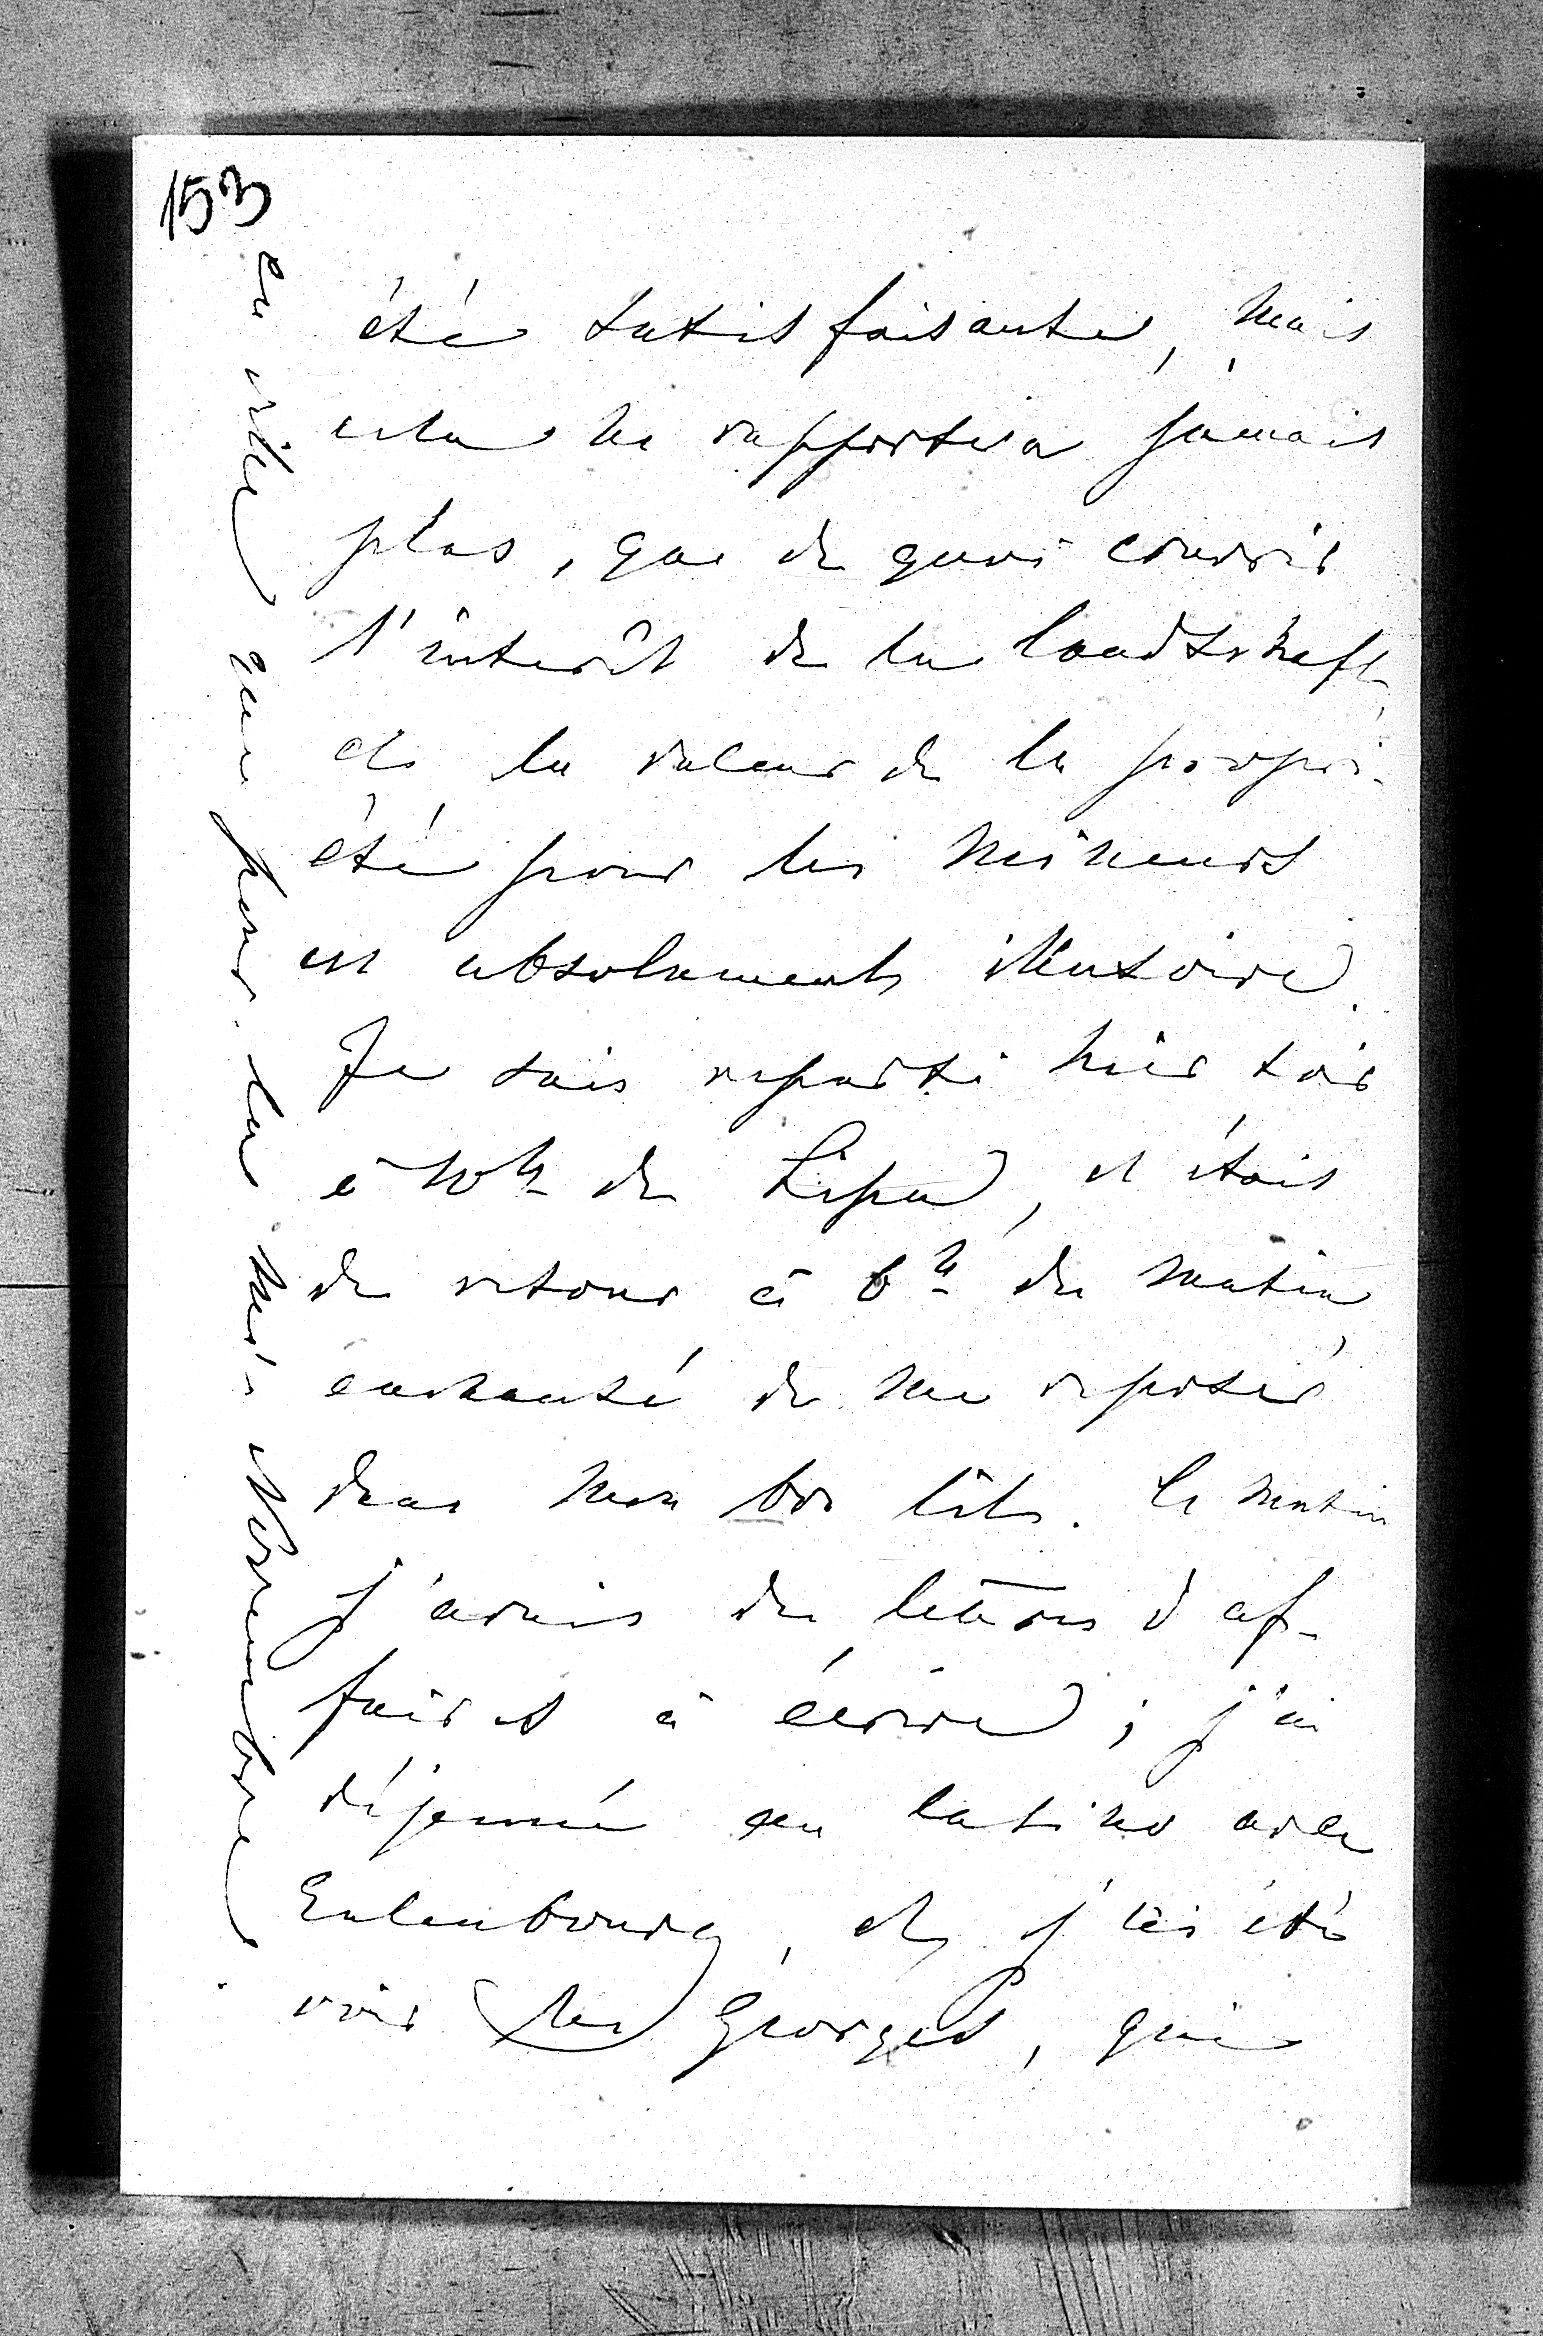 153
été satisfaisante, mais
cela ne rapportera jamais
plus, que de quoi couvrir
l'intérêt de la landschaft,
et la valeur de la propri-
été pour les mineurs
est absolument illusoire.
Je suis reparti hier soir
à 10h de Lipa, et étais
de retour à 6h du matin,
enchanté de me reposer
dans mon bon lit. Le matin
j'avais des lettres d'af-
faires à écrire; j'ai
déjeuné au casino avec
Eulenbourg, et j'ai été
voir les Georges, qui
en ville que pour le mois Novembre.